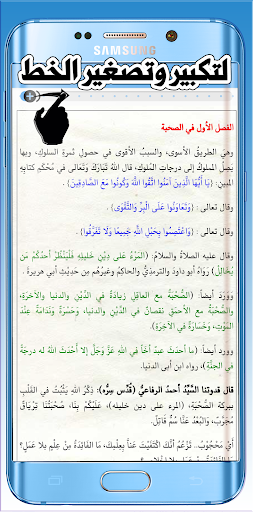 SAMSUNG
لتكبير وتصغير الخط
الفصل الأول في الصحبة
وهي الطريقُ الأسوى، والسببُ الأقوى في حصولِ ثمرةِ السلوكِ، وبها
يَصِلُ المملوكُ إلى درجاتِ الملوكِ، قال اللهُ تَبَارَكَ وَتَعَالَى في مُحْكَمِ كتابِهِ
المبينِ: {يَا أَيُّهَا الَّذِينَ آمَنُوا اتَّقُوا اللَّهَ وَكُونُوا مَعَ الصَّادِقِينَ}.
وقال تعالى : {وَتَعَاوَنُوا عَلَى الْبِرِّ وَالتَّقْوَى}.
وقال تعالى : {وَاعْتَصِمُوا بِحَبْلِ اللَّهِ جَمِيعًا وَلَا تَفَرَّقُوا}.
وقال عليه الصلاة والسلام: (المَرْءُ عَلَى دِينِ خَلِيلِهِ فَلْيَنْظُرْ أَحَدُكُمْ مَن
يُخَالِلْ) رَوَاهُ أبو داودَ والترمذيُّ والحاكمُ وغيرُهم مِن حَدِيثِ أبي هريرة .
وَوَرَدَ أيضاً: (الصُّحْبَةُ مع العاقِلِ زِيَادَةٌ في الدِّيْنِ والدنيا والآخِرَةِ،
والصُّحْبَةُ مع الأحمقِ نقصَانٌ في الدِّيْنِ والدنيا، وحَسْرَةٌ وَنَدَامَةٌ عِنْدَ
المَوْتِ، وخَسَارَةٌ في الآخِرَةِ).
وورد أيضاً: (ما أحدَثَ عبدٌ أخاً في اللهِ عَزَّ وَجَلَّ إلا أَحْدَثَ اللهُ له درجةً
في الجَنَّةِ)، رواه ابن أبي الدنيا.
قال قدوتنا السَّيِّدُ أحمدُ الرفاعيُّ (قُدِّسَ سِرُّه): ذِكْرُ اللهِ يَثْبُتُ في القَلْبِ
ببركة الصُّحْبَةِ، (المرء على دين خليله)، عَلَيْكُم بِنَا، صُحْبَتُنَا تِرْيَاقٌ
مُجَرَّبٌ، والبُعْدُ عَنَّا سُمٌّ قَاتِلٌ.
أيْ مَحْجُوبُ.. تَزْعُمُ أنَّكَ اكْتَفَيْتَ عَنَّا بِعِلْمِكَ، مَا الفَائِدَةُ مِنْ عِلْمٍ بِلا عَمَلٍ؟